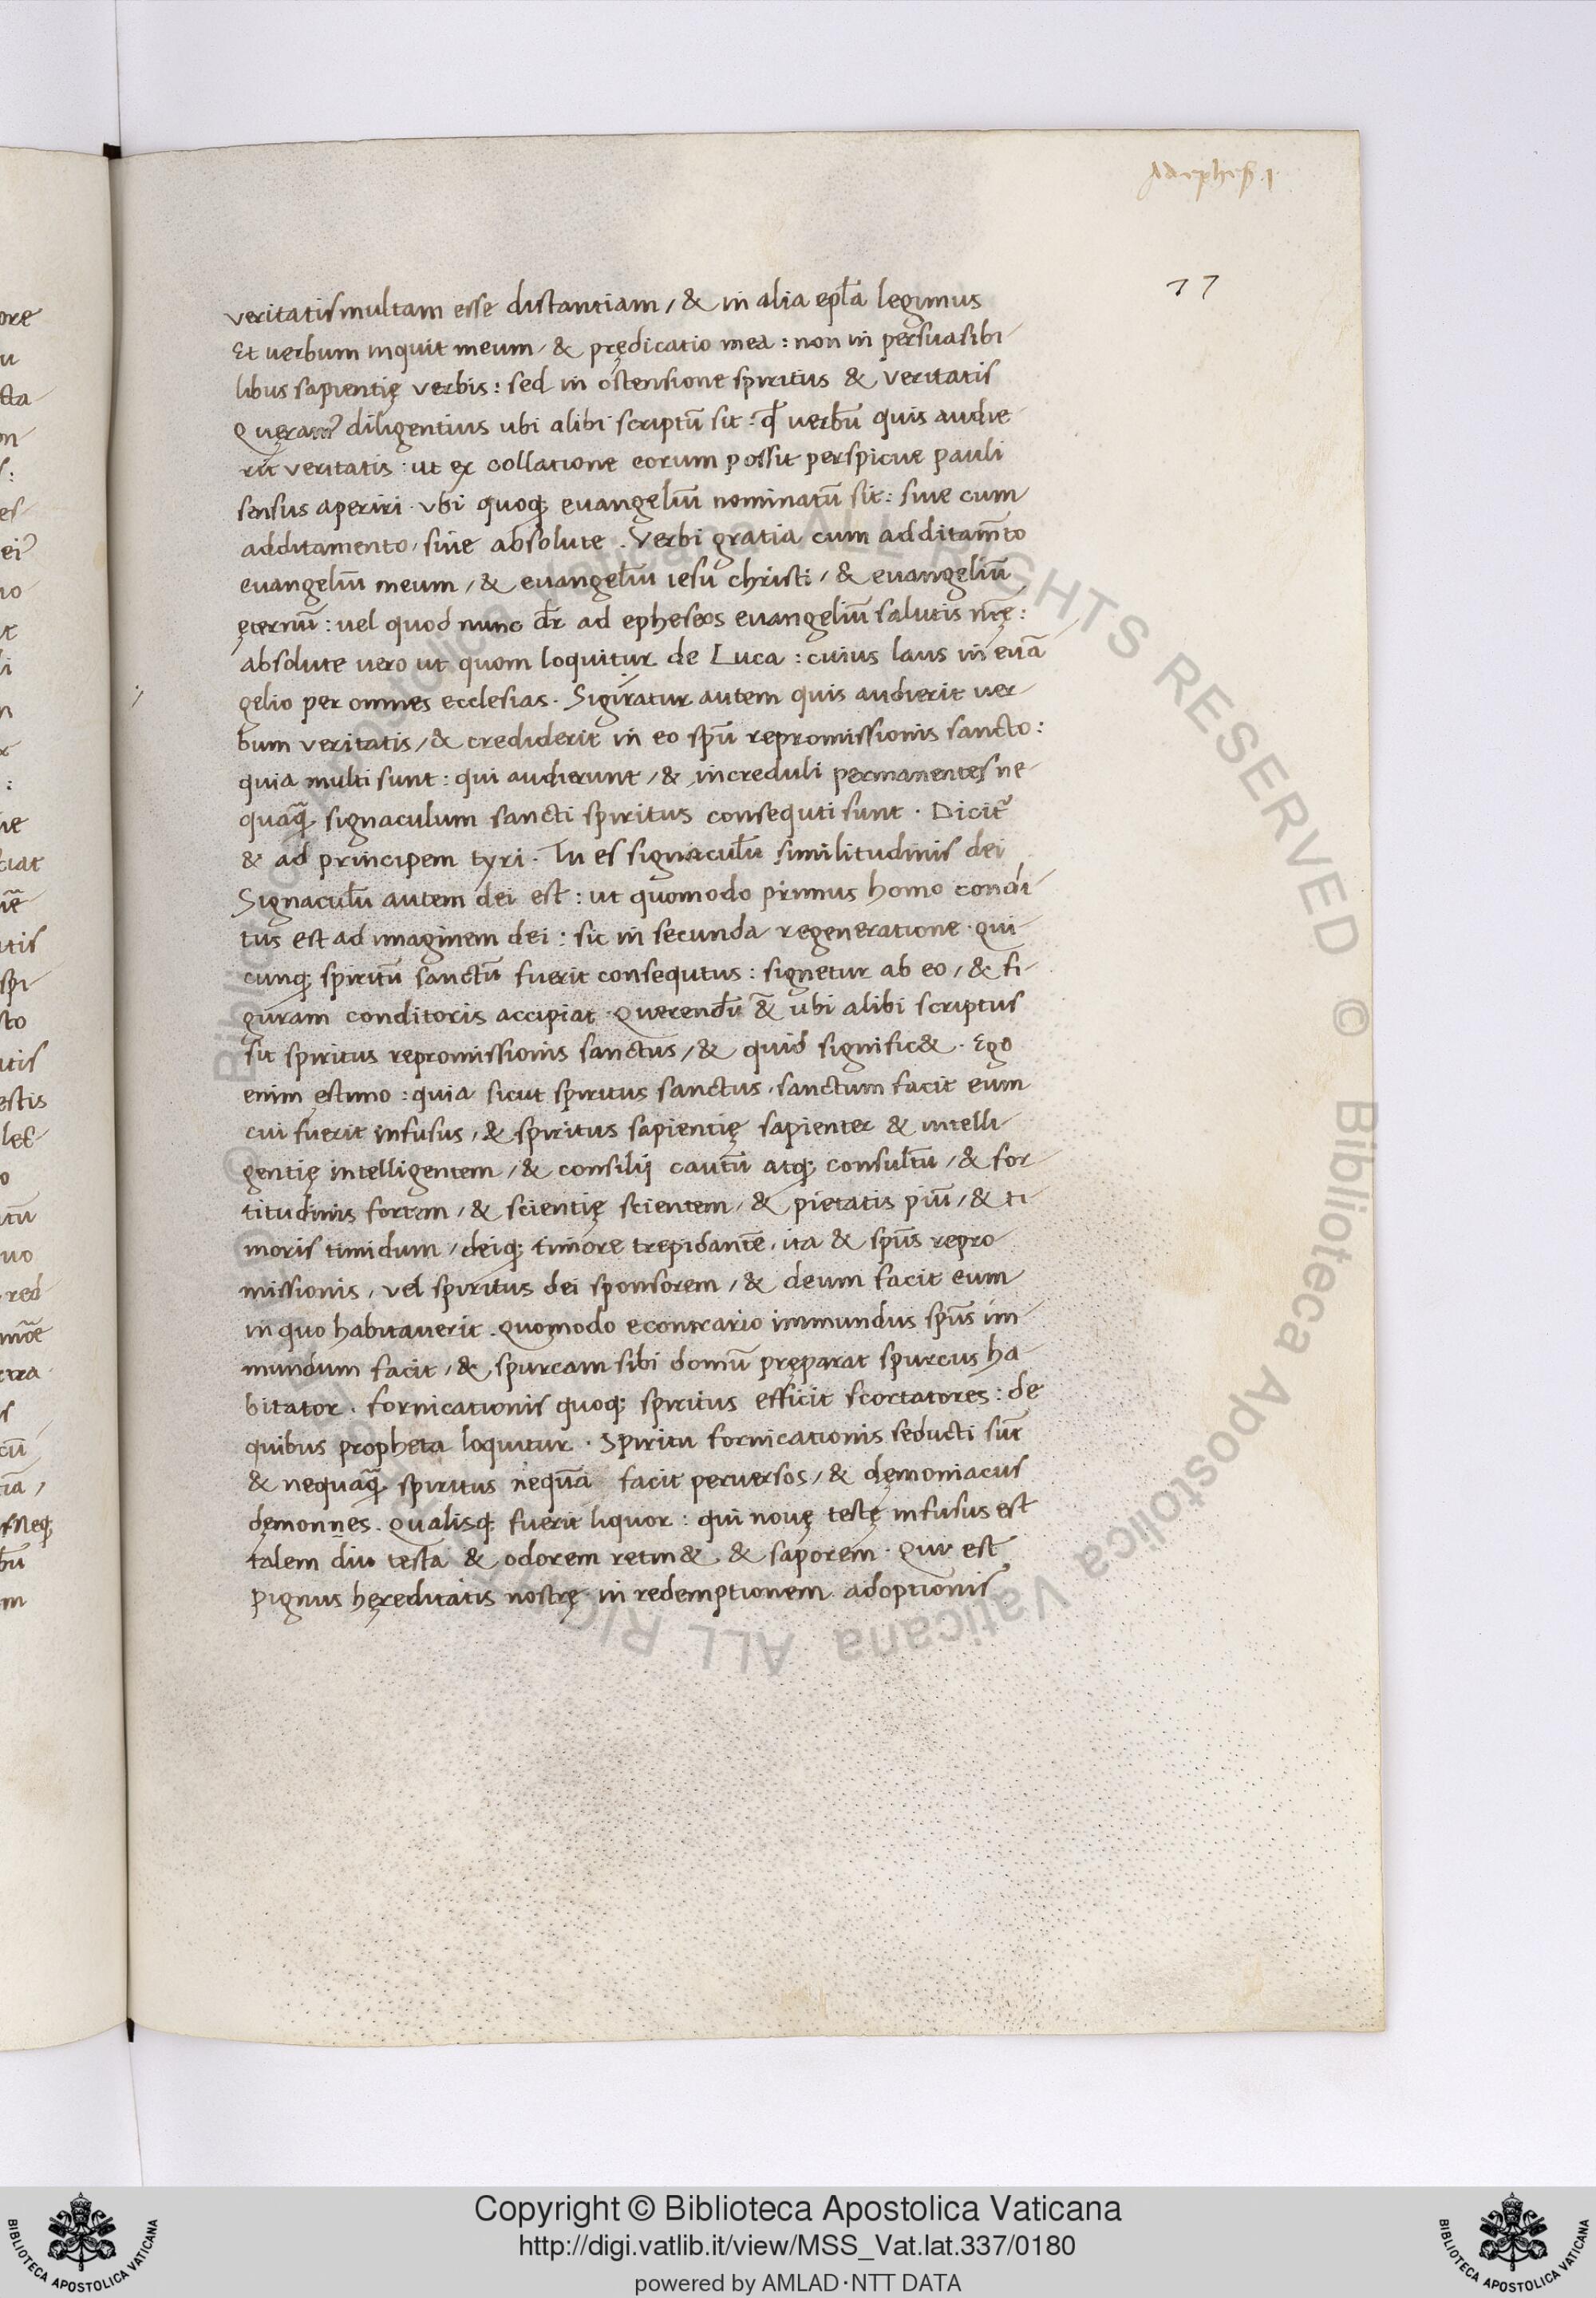 Ad ephes. 1.
77
veritatis multam esse distantiam / & in alia epl̄a legimus
Et uerbum inquit meum / & prędicatio mea : non in persuasibi-
libus sapientię verbis : sed in ostensione spiritus & veritatis
Quęram᷒ diligentius ubi alibi scriptū sit : ꝙ uerbū quis audie-
rit veritatis : ut ex collatione eorum possit perspicue pauli
sensus aperiri . vbi quoq; euangeliū nominatū sit : siue cum
additamento / siue absolute . Verbi gratia cum additam̄to
euangeliū meum / & euangeliū iesu christi / & euangeliū
ęternū : uel quod nunc dr̄ ad epheseos euangeliū salutis nr̄ę :
absolute vero ut quom loquitur de Luca : cuius laus in euā
gelio per omnes ecclesias . Sigiratur autem quis audierit ver-
bum veritatis / & crediderit in eo spū repromissionis sancto :
quia multi sunt : qui audierunt / & increduli permanentes ne-
quaq̄ signaculum sancti spiritus consequti sunt . Dicit᷑
& ad principem tyri . Tu es signaculū similitudinis dei
Signaculū autem dei est : ut quomodo primus homo condi-
tus est ad imaginem dei : sic in secunda regeneratione . qui-
cunq; spiritū sanctū fuerit consequtus : signetur ab eo / & fi-
guram conditoris accipiat . Querendū & ubi alibi scriptus
sit spiritus repromissionis sanctus / & quid signific& . Ego
enim ęstimo : quia sicut spiritus sanctus . sanctum facit eum
cui fuerit infusus / & spiritus sapientię sapienter & intelli-
gentię intelligentem / & consilij cautū atq; consultū / & for-
titudinis fortem / & scientię scientem / & pietatis piū / & ti-
moris timidum / deiq; timore trepidantē . ita & spūs repro-
missionis / vel spiritus dei sponsorem / & deum facit eum
in quo habitauerit . Quomodo econtrario immundus spūs im-
mundum facit / & spurcam sibi domū pręparat spurcus ha-
bitator . fornicationis quoq; spiritus efficit scortatores : de
quibus propheta loquitur . Spiritu fornicationis seducti sūt
& nequaq̄ spiritus nequā facit peruersos / & dęmoniacus
dęmonnes . Qualisq; fuerit liquor : qui nouę testę infusus est
talem diu testa & odorem retin& . & saporem . Qui est
pignus hęreditatis nostrę in redemptionem adoptionis
ore
u
cta-
on-
s:
es-
ei᷒
uo-
li
n
:
ue
ciat
uē
atis
spi-
sto
atis
estis
o
tū
uo
red
tra
s
cū
tia /
Neq;
bū
m
Copyright © Biblioteca Apostolica Vaticana
http://digi.vatlib.it/view/MSS_Vat.lat.337/0180
powered by AMLAD·NTT DATA
BIBLIOTECA APOSTOLICA VATICANA
BIBLIOTECA APOSTOLICA VATICANA
© Biblioteca Apostolica Vaticana ALL RIGHTS RESERVED © Biblioteca Apostolica Vaticana ALL RIGHTS RESERVED